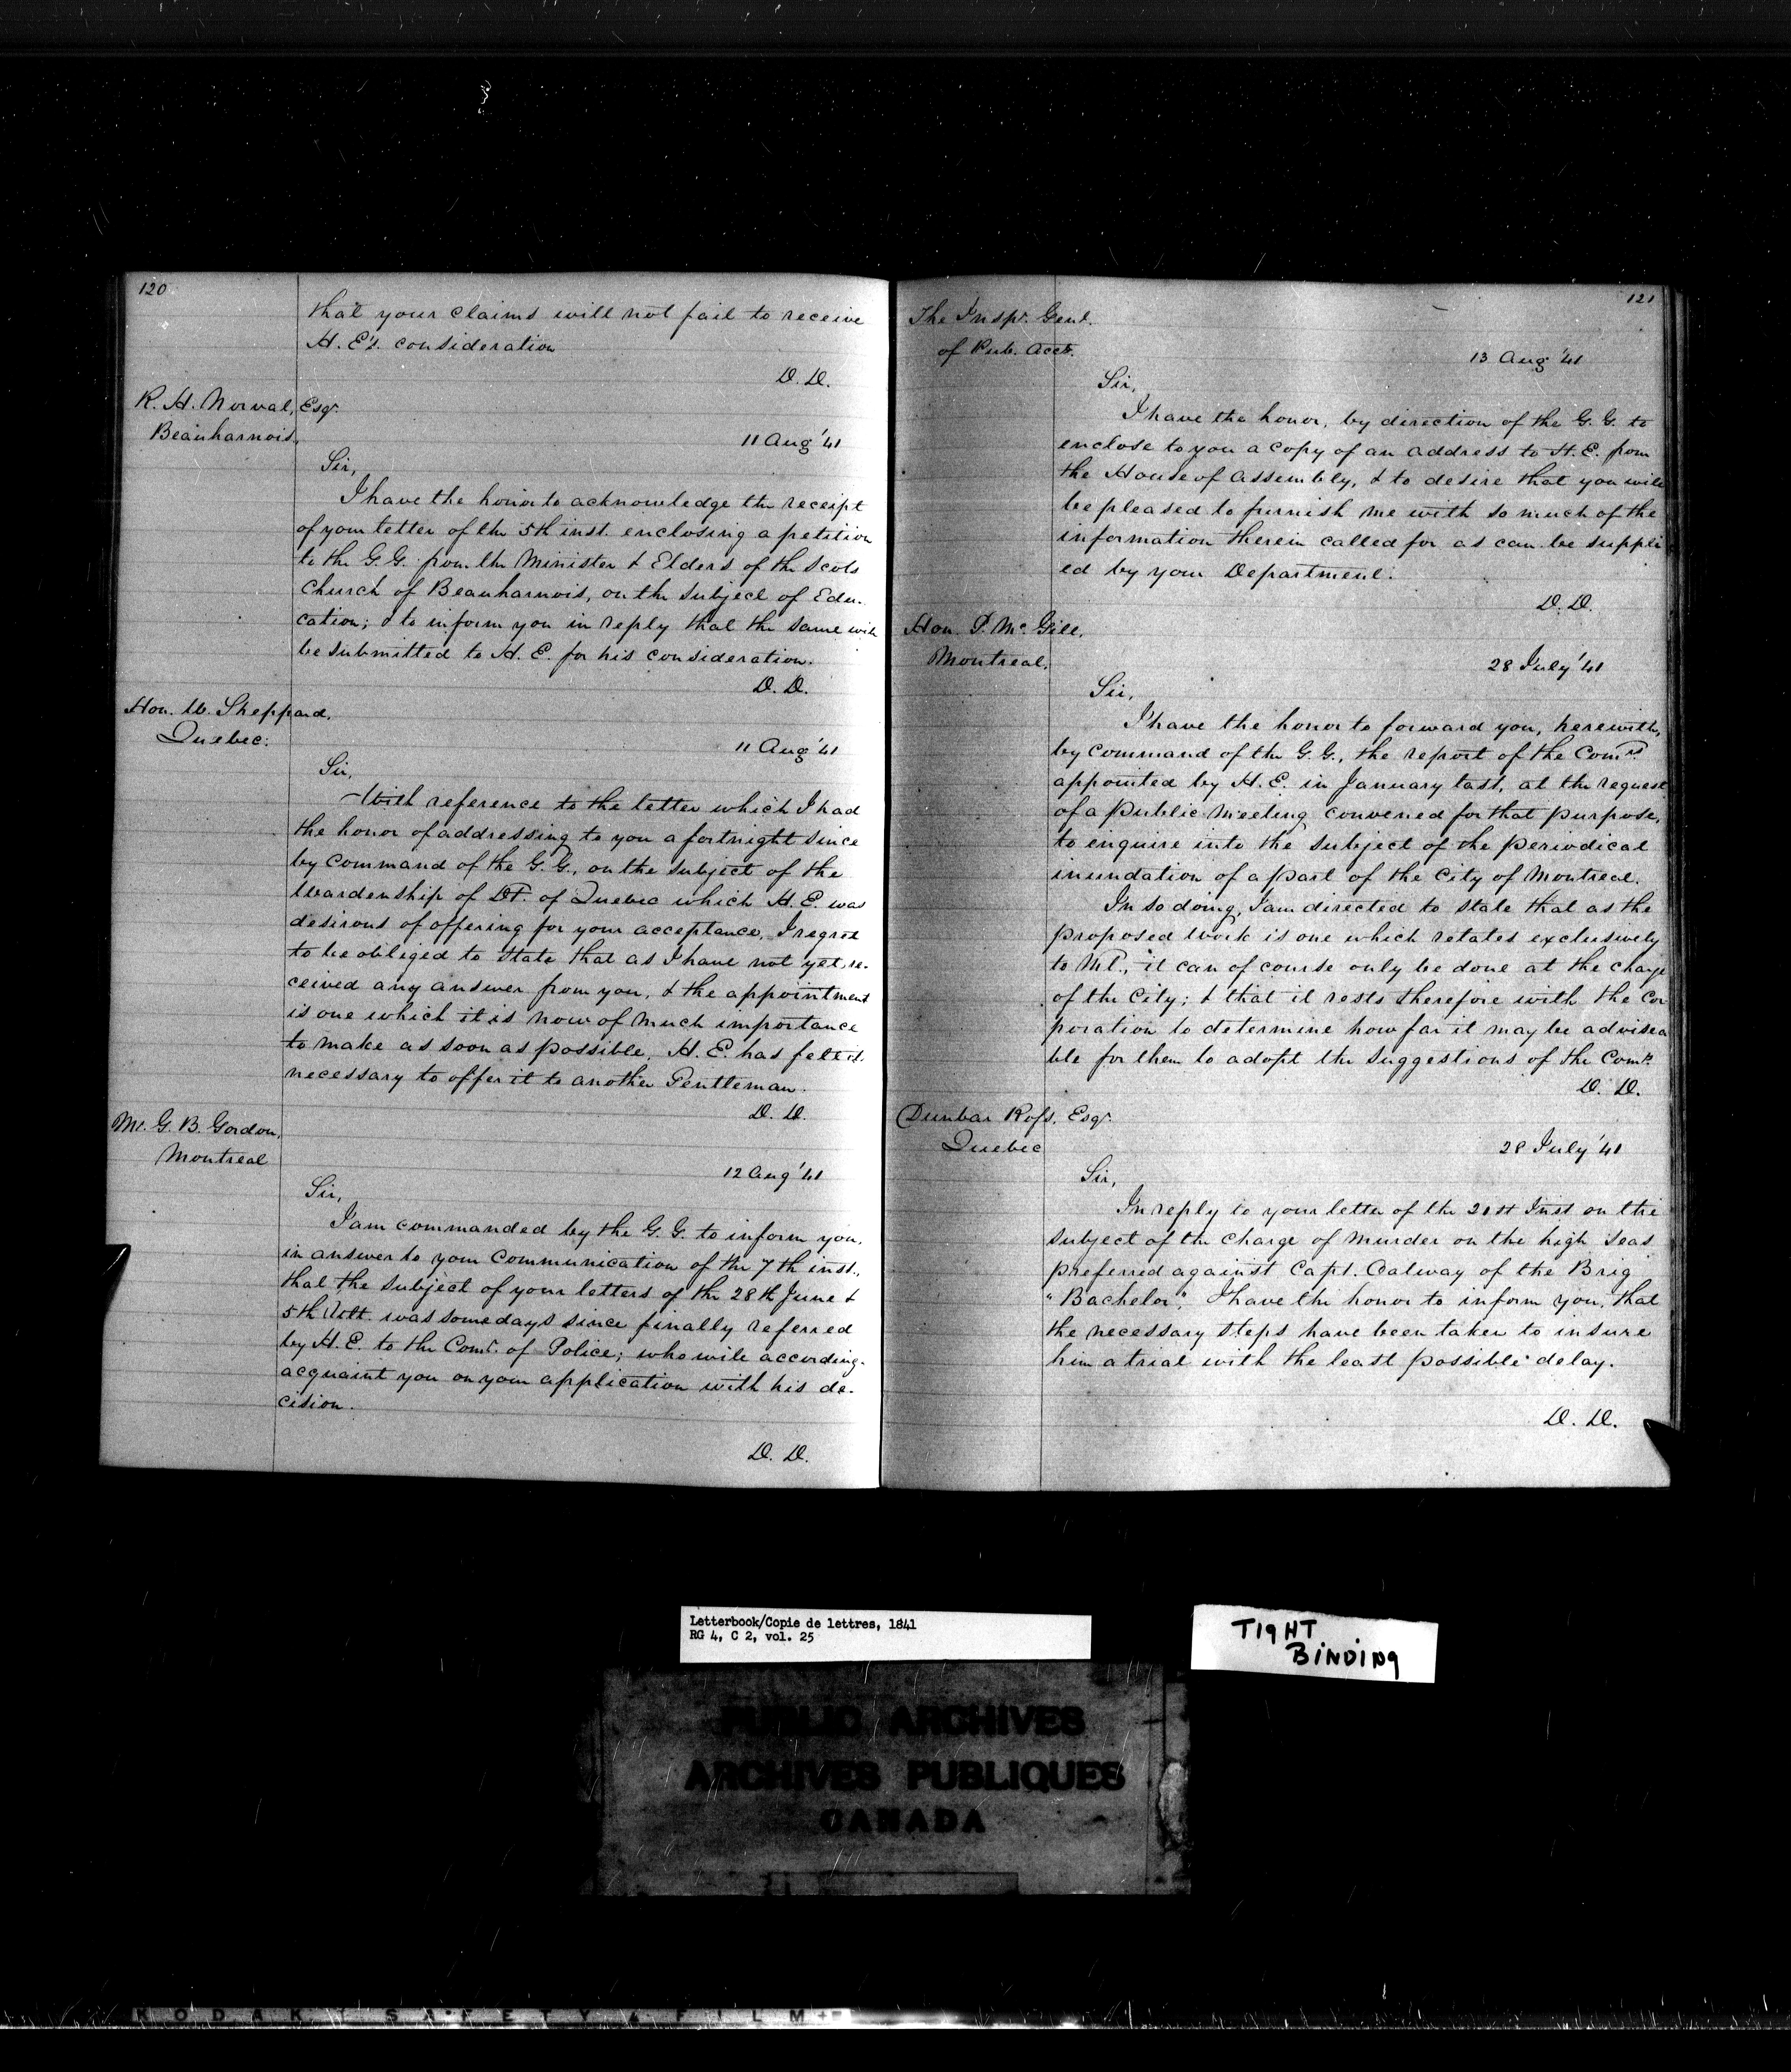 120
that your claims will not fail to receive
H. E's. consideration
D. D.
R. H. Norval, Esqr.
Beauharnois,
11 Aug '41
Sir,
I have the honor to acknowledge the receipt
of your letter of the 5th inst. enclosing a petition
to the G. G. from the Minister & Elders of the Scots
Church of Beauharnois, on the subject of Edu-
cation; & to inform you in reply that the same will
be submitted to H. E. for his consideration.
D. D.
Hon. W. Sheppard,
Quebec.
11 Aug '41
Sir,
With reference to the letter which I had
the honor of addressing to you a fortnight since
by command of the G. G., on the subject of the
Wardenship of Dt. of Quebec which H. E. was
desirous of offering for your acceptance, I regret
to be obliged to state that as I have not yet re-
ceived any answer from you, & the appointment
is one which it is now of much importance
to make as soon as possible, H. E. has felt it
necessary to offer it to another Gentleman.
D. D.
Mr. G. B. Gordon,
Montreal
12 Aug '41
Sir,
I am commanded by the G. G. to inform you,
in answer to your communication of the 7th inst.,
that the subject of your letters of the 28th June &
5th Ult. was some days since finally referred
by H. E. to the Comr. of Police; who will according-
acquaint you on your application with his de-
cision.
D. D.
121
The Inspr. Genl.
of Pub. Accts.
13 Aug '41
Sir,
I have the honor, by direction of the G. G. to
enclose to you a copy of an address to H. E. from
the House of Assembly, & to desire that you will
be pleased to furnish me with so much of the
information therein called for as can be suppli
ed by your Department.
D. D.
Hon. P. McGill,
Montreal.
28 July '41
Sir,
I have the honor to forward you, herewith,
by command of the G. G., the report of the Comrs.
appointed by H. E. in January last, at the request
of a public Meeting convened for that purpose,
to enquire into the subject of the periodical
inundation of a part of the City of Montreal.
In so doing, I am directed to state that as the
proposed work is one which relates exclusively
to Ml., it can of course only be done at the charge
of the City; & that it rests therefore with the Cor
poration to determine how far it may be advisea
ble for them to adopt the suggestions of the Comrs.
D. D.
Dunbar Ross, Esqr.
Quebec
28 July '41
Sir,
In reply to your letter of the 21st Inst on the
subject of the charge of murder on the high seas
preferred against Capt. Oalway of the Brig
"Bachelor", I have the honor to inform you, that
the necessary steps have been taken to insure
him a trial with the least possible delay.
D. D.
Letterbook/Copie de lettres, 1841
RG 4, C 2, vol. 25
TIGHT
BINDING
PUBLIC ARCHIVES
ARCHIVES PUBLIQUES
CANADA
KODAK SAFETY FILM